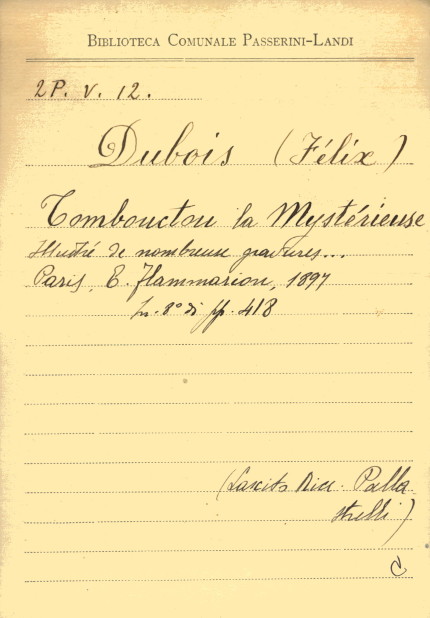 BIBLIOTECA COMUNALE PASSERINI-LANDI
2P. V. 12.
Dubois (Félix)
Tombouctou la Mystérieuse
Illustré de nombreuse gravures...
Paris, E. Flammarion, 1897
In. 8° di pp. 418
(Lascito Picc. Palla
strelli)
C